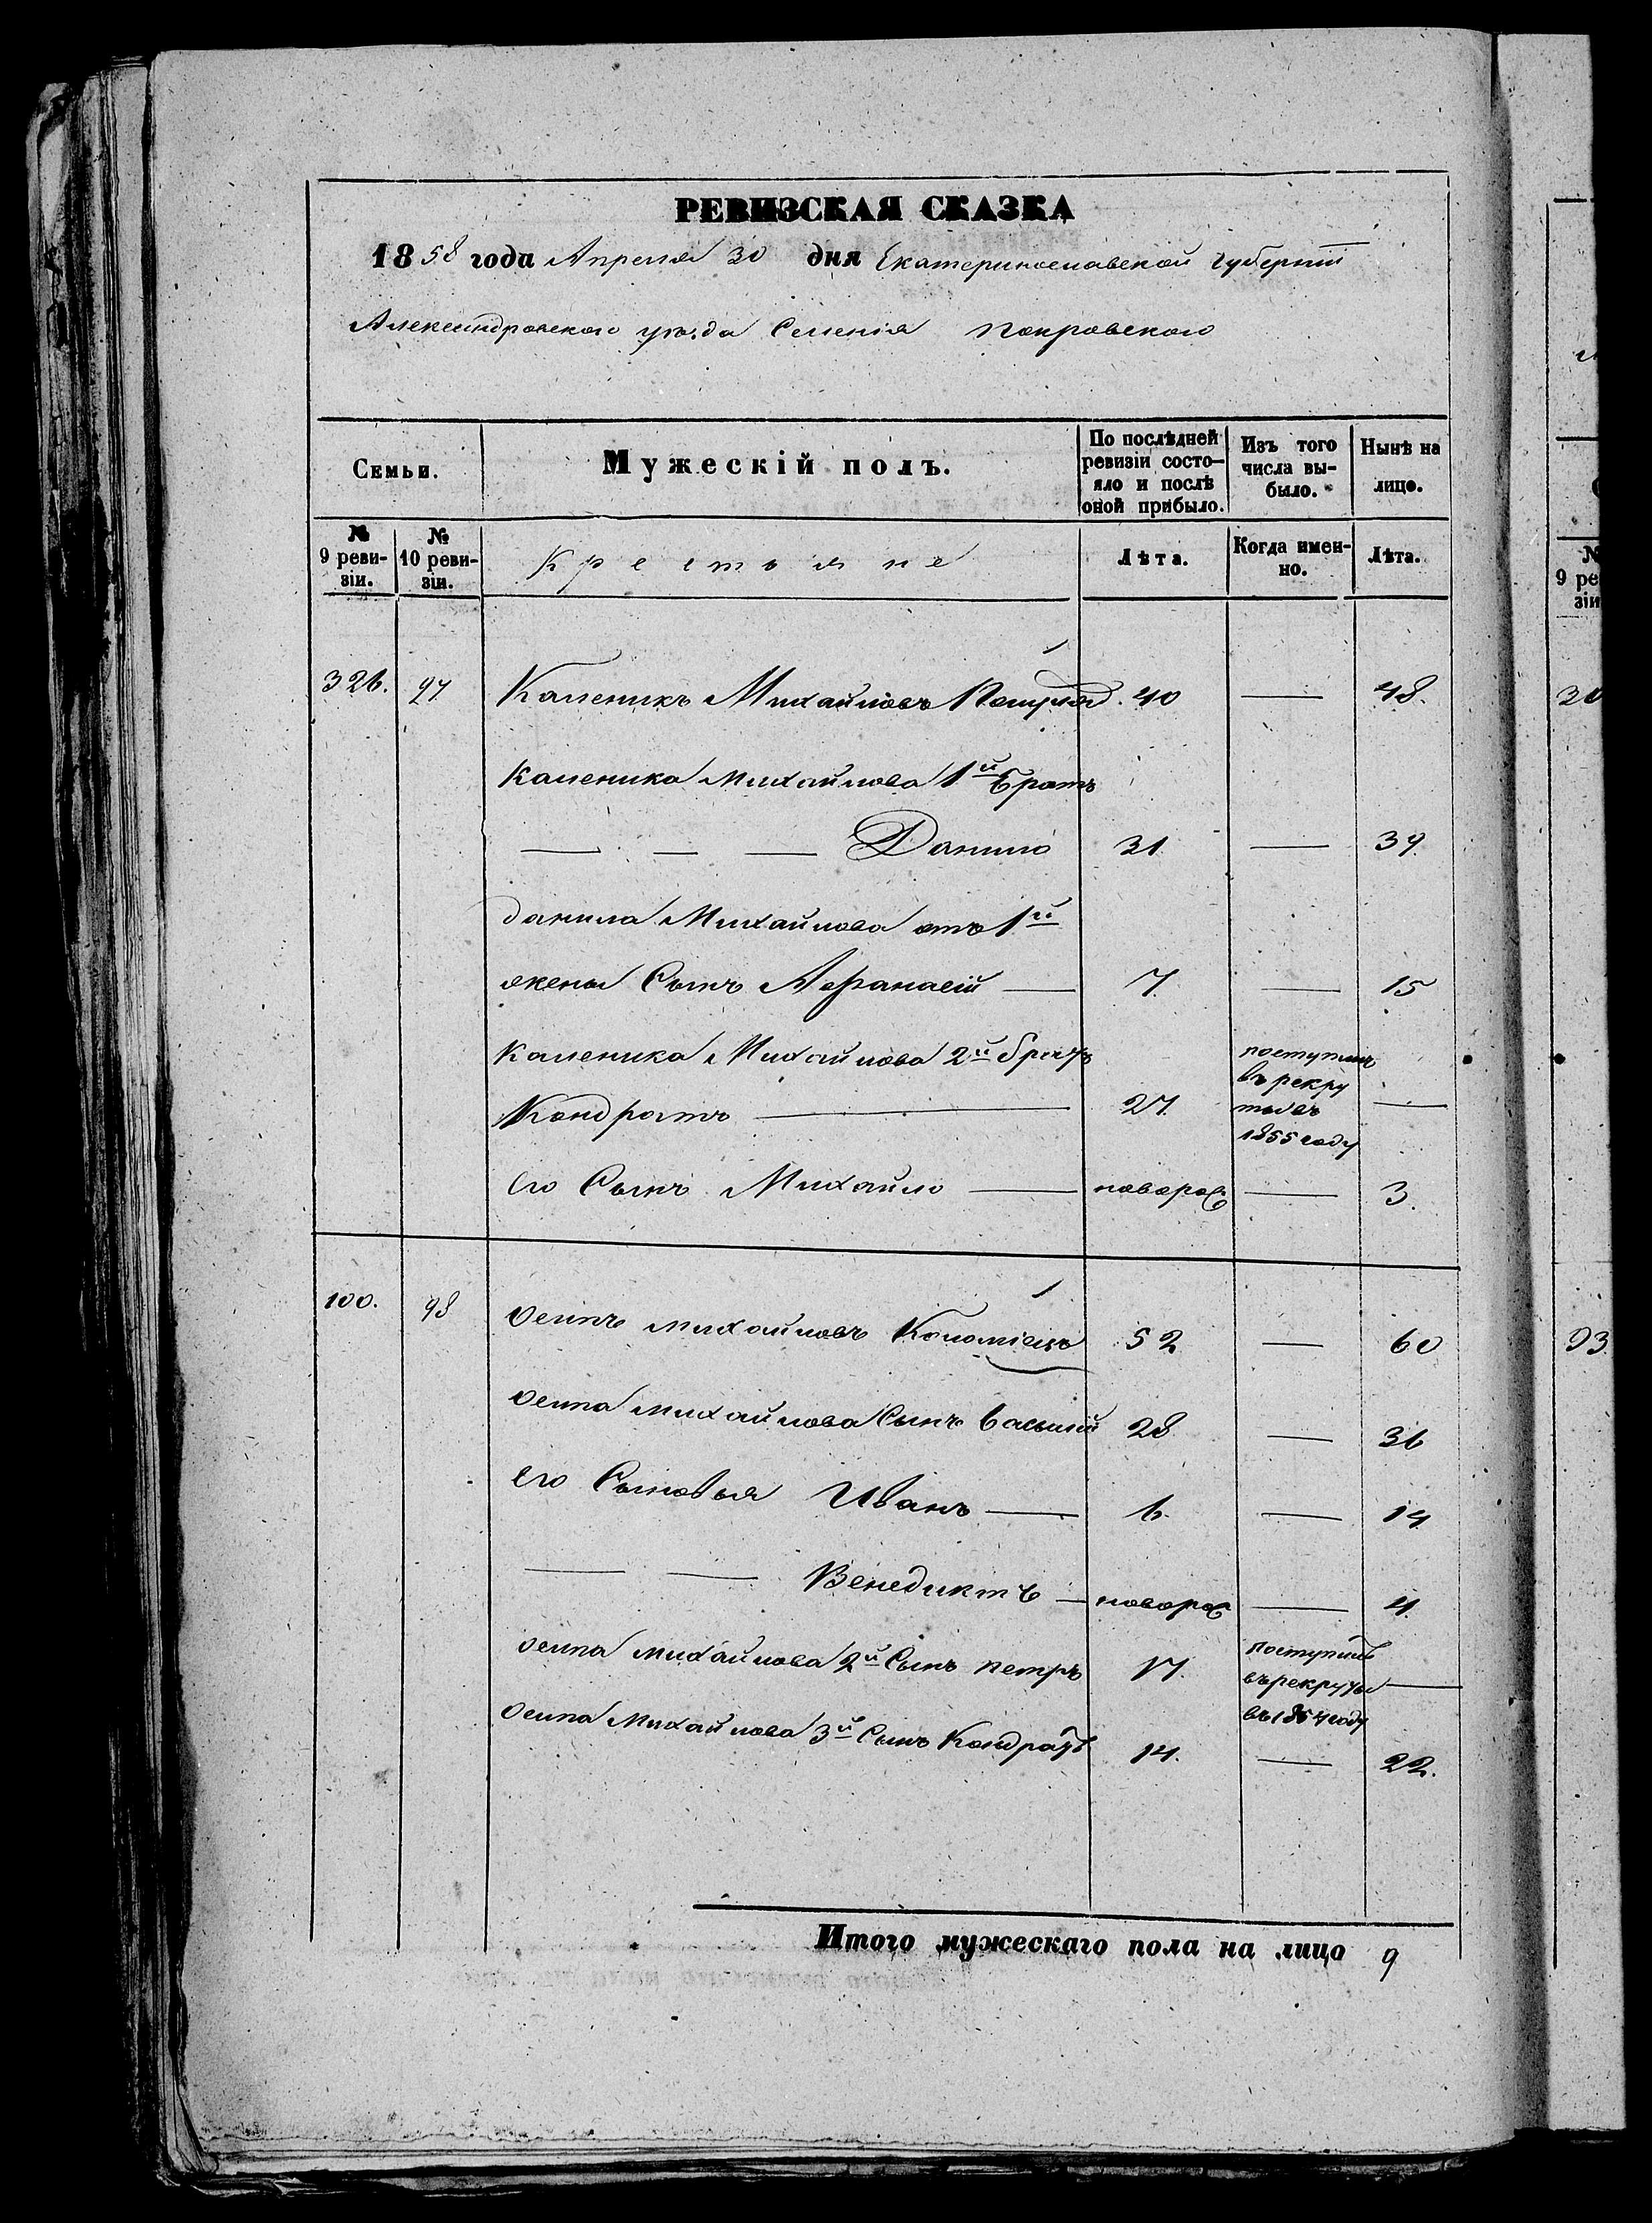 РЕВИЗСКАЯ СКАЗКА
1858 года Апреля 30 дня Екатеринославской губернии
Александровского уѣзда Селенія Покровского
Семьи.
Мужескій полъ.
По послѣдней ревизіи состо-
яло и послѣ
оной прибыло.
Изъ того
числа вы-
было.
Нынѣ на
лицо.
№
9 реви-
зіи.
№
10 реви-
зіи.
Крестьяне
Лѣта.
Когда имен-
но.
Лѣта.
326. 97 Каленикъ Михайловъ 40 — 48.
Каленика Михайлова 1й Братъ
— — — Данило 31 — 39.
Данила Михайлова отъ 1й
жены Сынъ Афанасій — 7. — 15
Каленика Михайлова 2й братъ
Кондратъ — 27. поступилъ
въ рекру
ты въ
1855 году —
его Сынъ Михайло — новорож — 3.
100. 98 Осипъ Михайловъ Коломіецъ 52 — 60
Осипа Михайлова Сынъ Василій 28 — 36
его Сыновья Иванъ — 6. — 14
— — Венедиктъ — новорож — 4.
Осипа Михайлова 2й Сынъ Петръ 17. поступилъ
въ рекруты
въ 1854 году —
Осипа Михайлова 3й Сынъ Кондратъ 14. — 22.
Итого мужескаго пола на лицо 9
№
9 ре
зіи
93